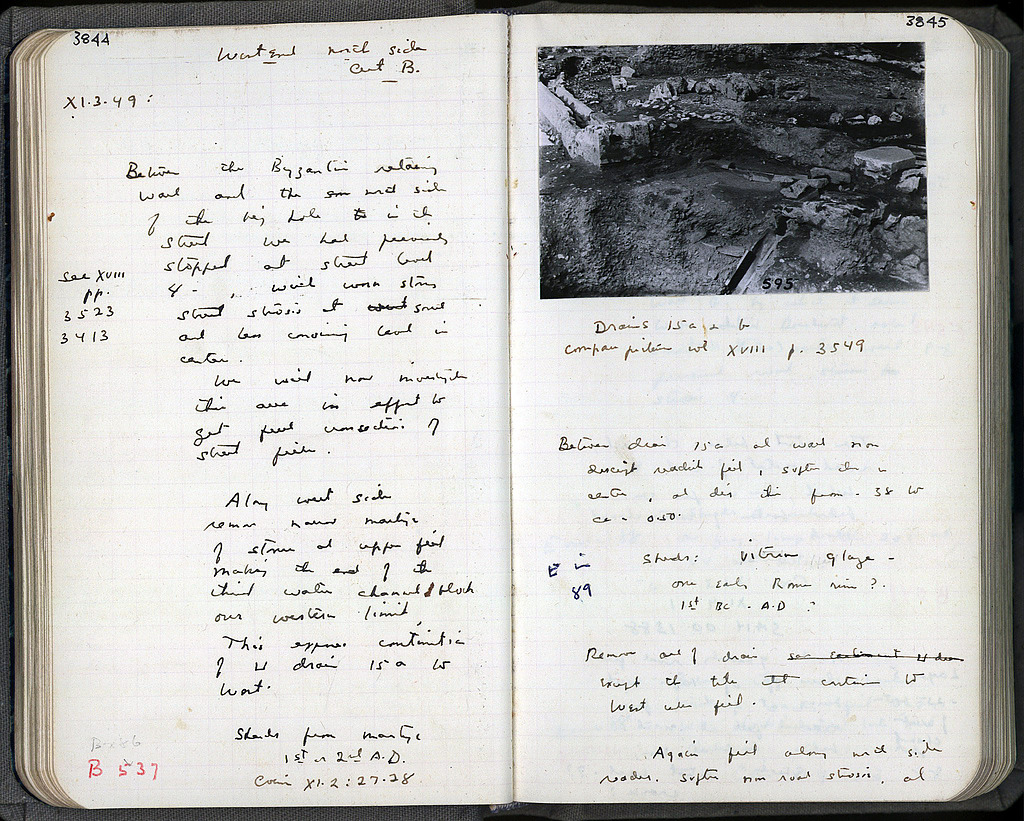 3844
West end north side
Cut B.
XI.3.49:
Between the Byzantin retaining
wall and the north side
of the big hole in the
street we had previously
stopped at street level
see XVIII
pp.
3523
3413
with worn stones
street strosis at some
and less convincing level in
center.
We will now investigate
this area in effort to
get good cross section of
street fill.
Along west side
remove narrow martyr
of stones and upper fill
making the end of the
third water channel block
our western limit.
This exposes continuation
of W drain 15 a to
West.
Sherds from martyr
1st or 2nd A.D.
Coin XI.2:27-28
B 537
3845
595
Drains 15 a
compare picture vol XVIII p. 3549
Between drain 15a and wall non
descript reddish fill, softer in
center, and dig this from - 38 to
ca - 0.50.
E in
89
Sherds: Vitreous glaze -
one early Roman rim?
1st BC - A.D ?
Remove all of drain
except the tile to
West when fill.
Again fill along north side
reader, softer non road strosis, and